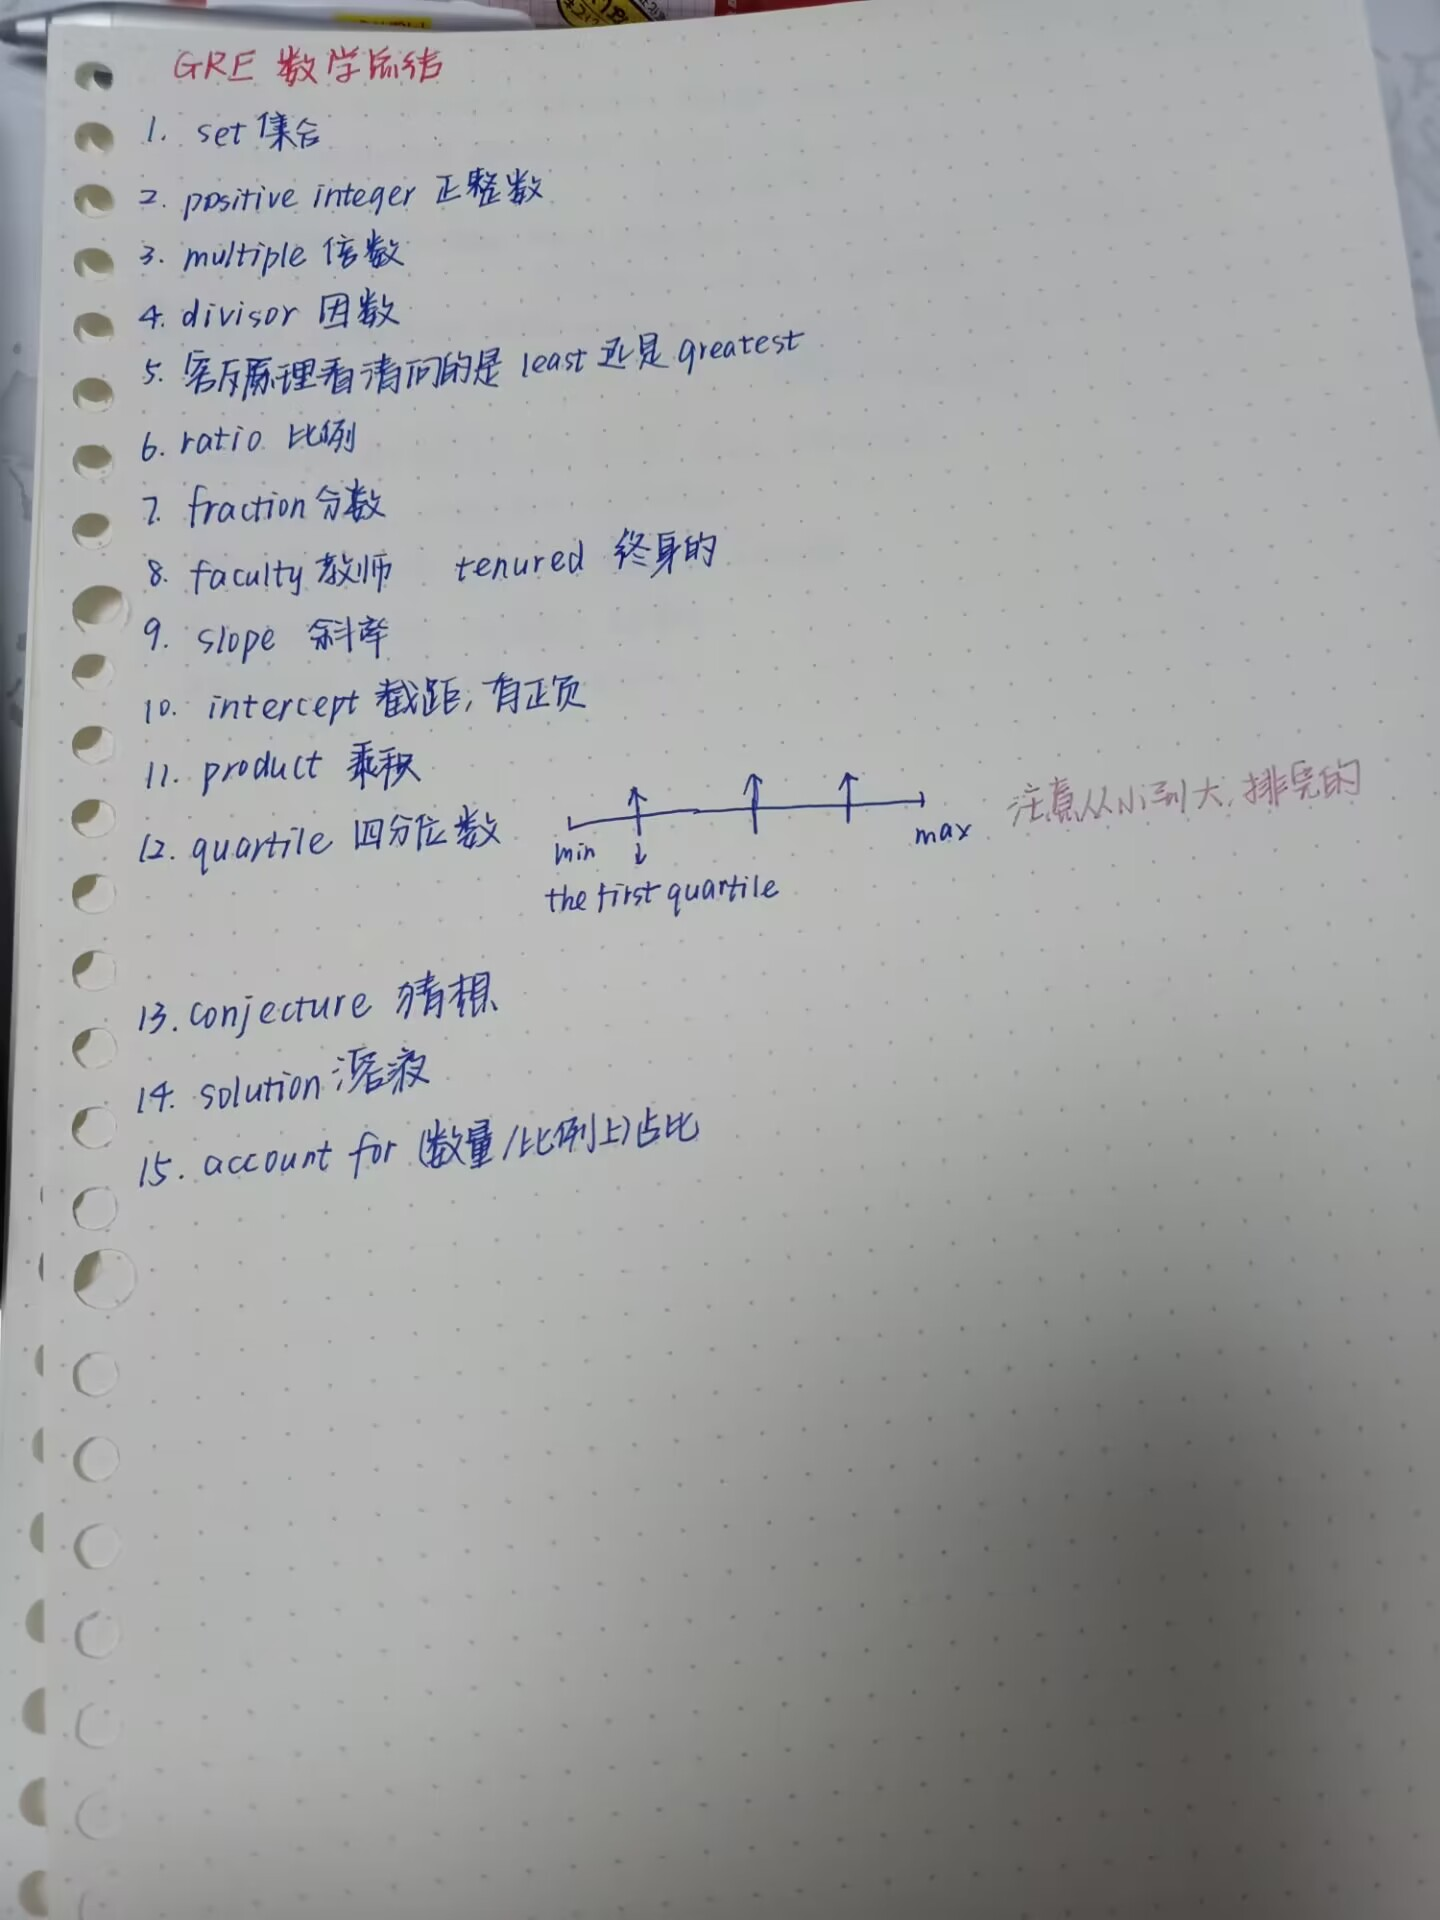 GRE 数学总结
1. set 集合
2. positive integer 正整数
3. multiple 倍数
4. divisor 因数
5. 容斥原理看清问的是 least 还是 greatest
6. ratio 比例
7. fraction 分数
8. faculty 教师 tenured 终身的
9. slope 斜率
10. intercept 截距, 有正负
11. product 乘积
12. quartile 四分位数
min
max
注意从小到大, 排完的
the first quartile
13. conjecture 猜想
14. solution 溶液
15. account for (数量/比例上)占比